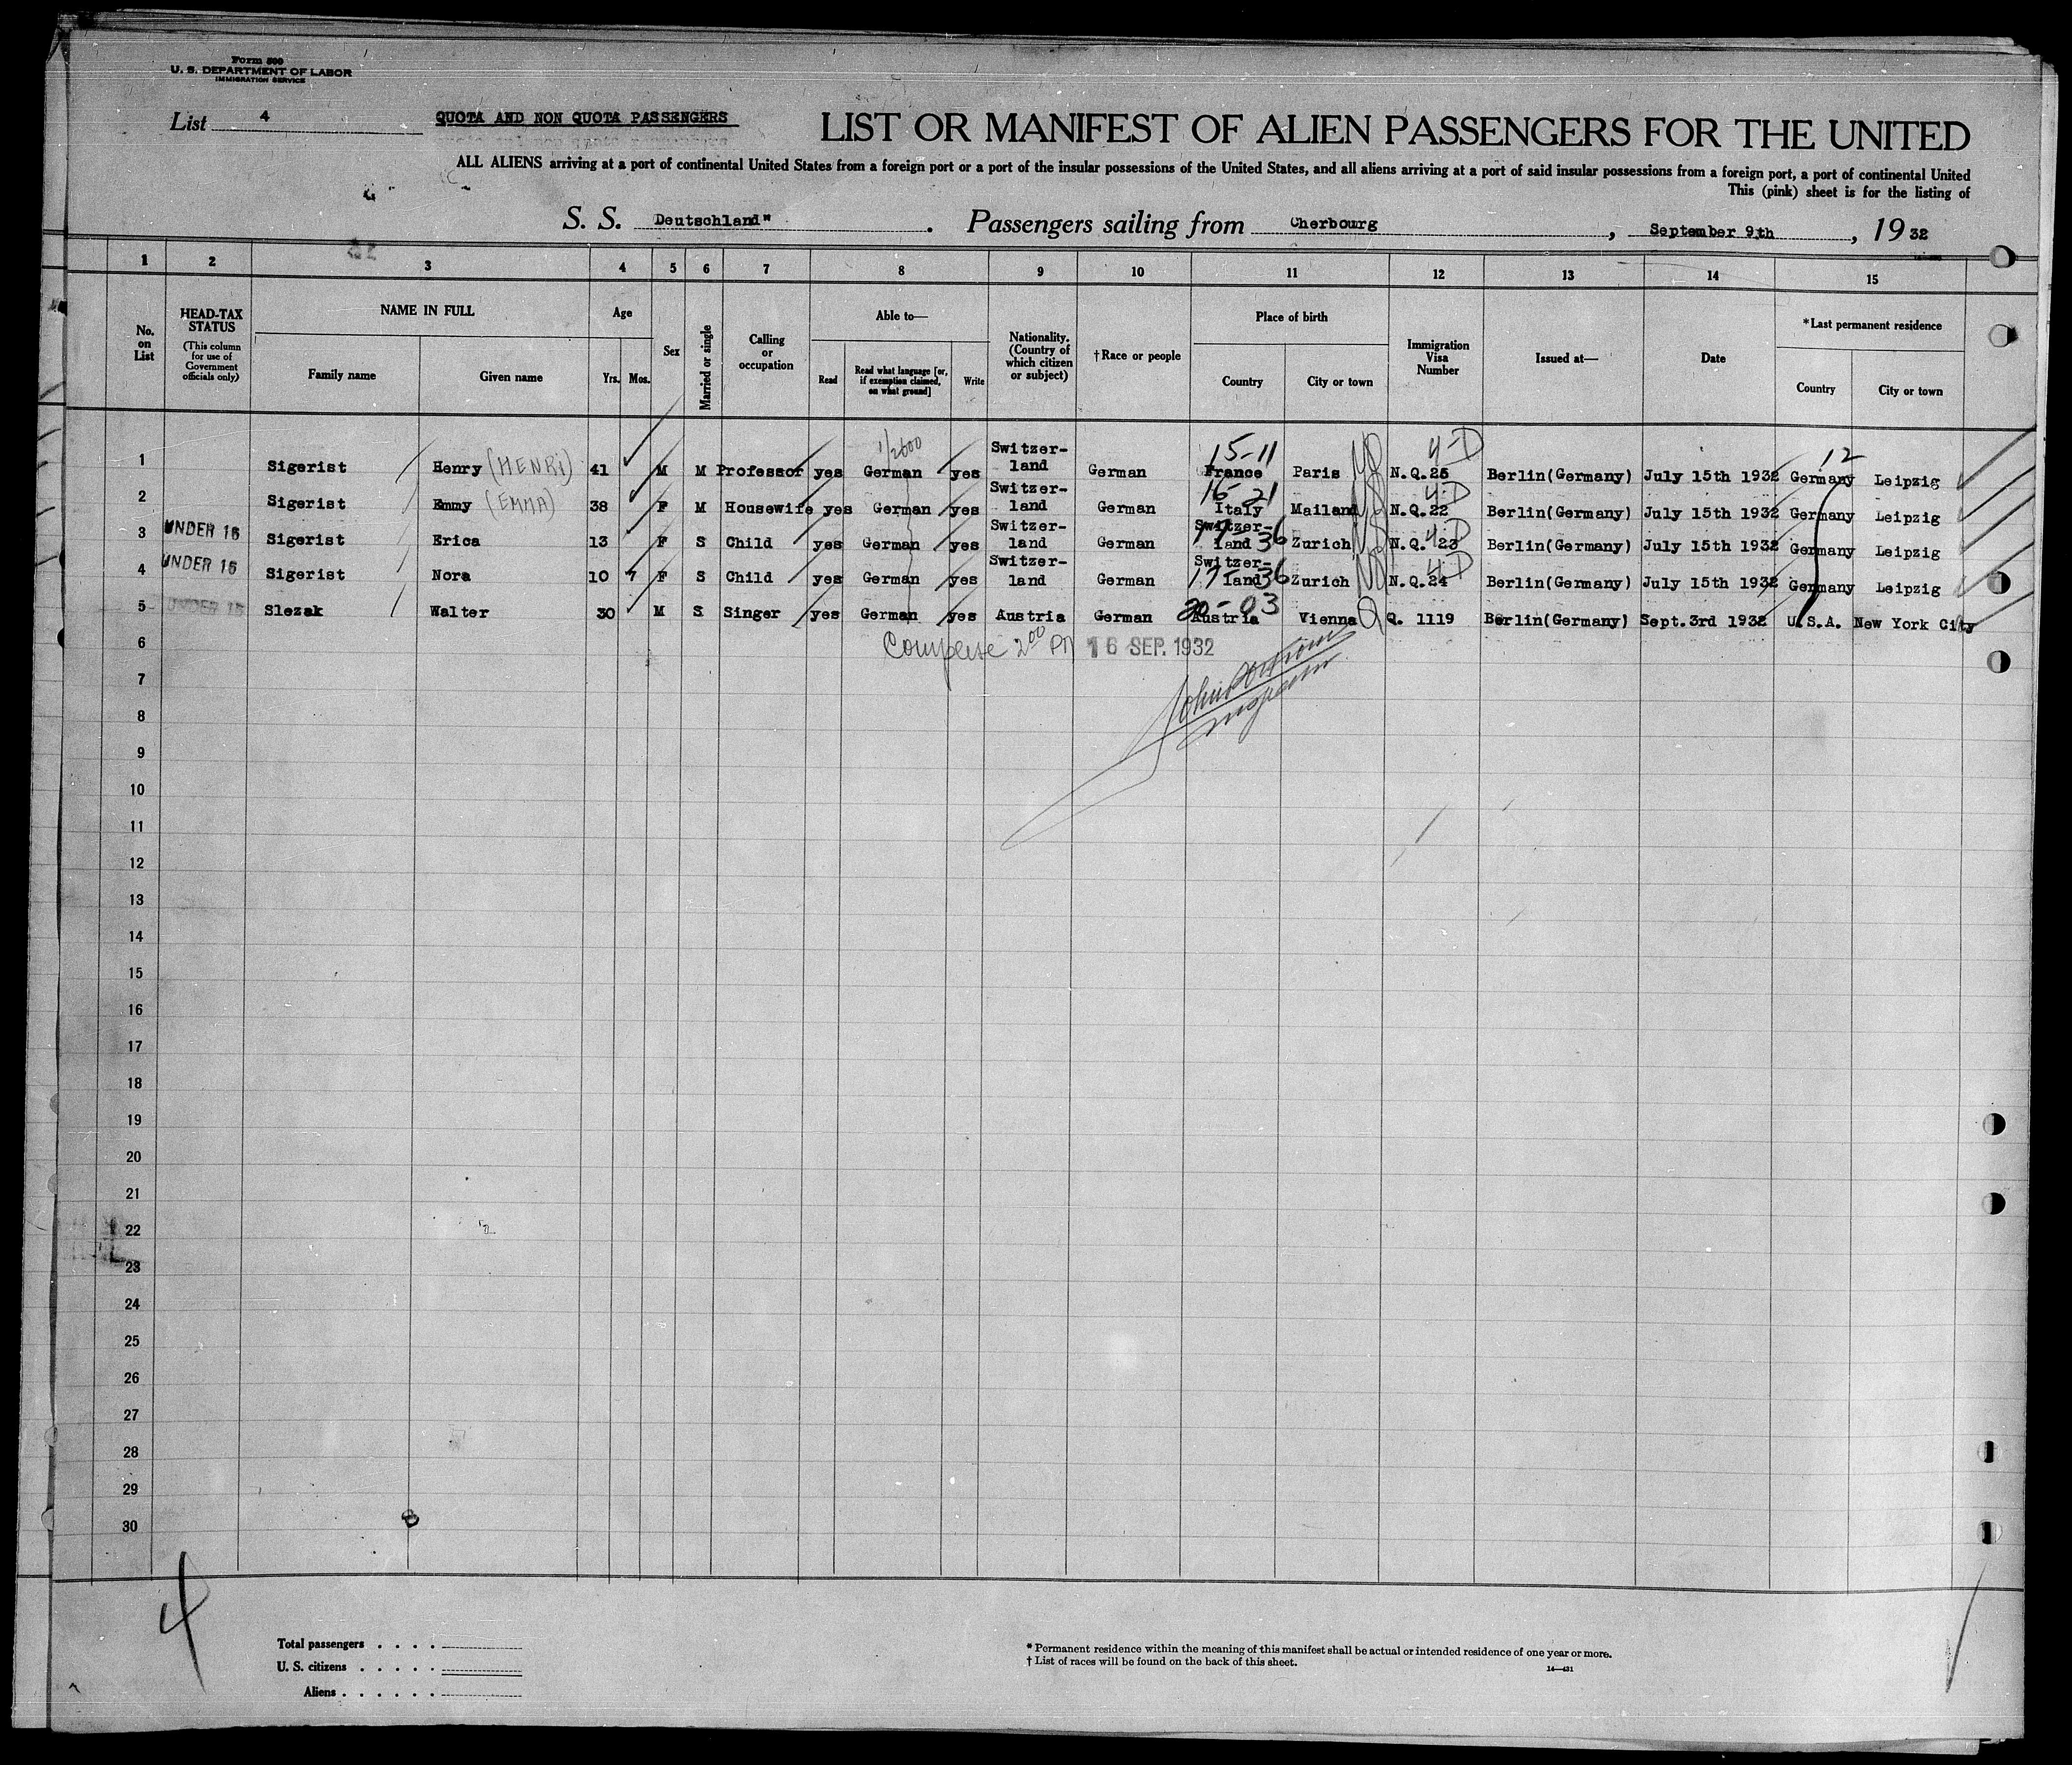 Form 500
U. S. DEPARTMENT OF LABOR
IMMIGRATION SERVICE
List 4
QUOTA AND NON QUOTA PASSENGERS
LIST OR MANIFEST OF ALIEN PASSENGERS FOR THE UNITED
ALL ALIENS arriving at a port of continental United States from a foreign port or a port of the insular possessions of the United States, and all aliens arriving at a port of said insular possessions from a foreign port, a port of continental United
This (pink) sheet is for the listing of
S. S. Deutschland" . Passengers sailing from Cherbourg , September 9th , 19 32
1 2 3 4 5 6 7 8 9 10 11 12 13 14 15
No. on List
HEAD-TAX STATUS (This column for use of Government officials only)
NAME IN FULL
Family name Given name
Age
Yrs. Mos.
Sex
Married or single
Calling or occupation
Able to—
Read Read what language [or, if exemption claimed, on what ground] Write
Nationality. (Country of which citizen or subject)
†Race or people
Place of birth
Country City or town
Immigration Visa Number
Issued at—
Date
*Last permanent residence
Country City or town
1 Sigerist Henry (HENRI) 41 M M Professor yes German yes Switzer-land German 15-11 France Paris 4-D N.Q.25 Berlin(Germany) July 15th 1932 12 Germany Leipzig
2 Sigerist Emmy (EMMA) 38 F M Housewife yes German yes Switzer-land German 16-21 Italy Mailand 4-D N.Q.22 Berlin(Germany) July 15th 1932 Germany Leipzig
3 UNDER 16 Sigerist Erica 13 F S Child yes German yes Switzer-land German Switzer-land 36 Zurich 4-D N.Q. 23 Berlin(Germany) July 15th 1932 Germany Leipzig
4 UNDER 16 Sigerist Nora 10 7 F S Child yes German yes Switzer-land German Switzer-land 17-36 Zurich 4-D N.Q.24 Berlin(Germany) July 15th 1932 Germany Leipzig
5 UNDER 16 Slezak Walter 30 M S Singer yes German yes Austria German 20-03 Austria Vienna Q Q. 1119 Berlin(Germany) Sept.3rd 1932 U.S.A. New York City
6 2 00 PM 16 SEP. 1932
7
8
9
10
11
12
13
14
15
16
17
18
19
20
21
22
23
24
25
26
27
28
29
30
4
Total passengers . . . .
U. S. citizens . . . . .
Aliens . . . . . .
* Permanent residence within the meaning of this manifest shall be actual or intended residence of one year or more.
† List of races will be found on the back of this sheet.
14—431